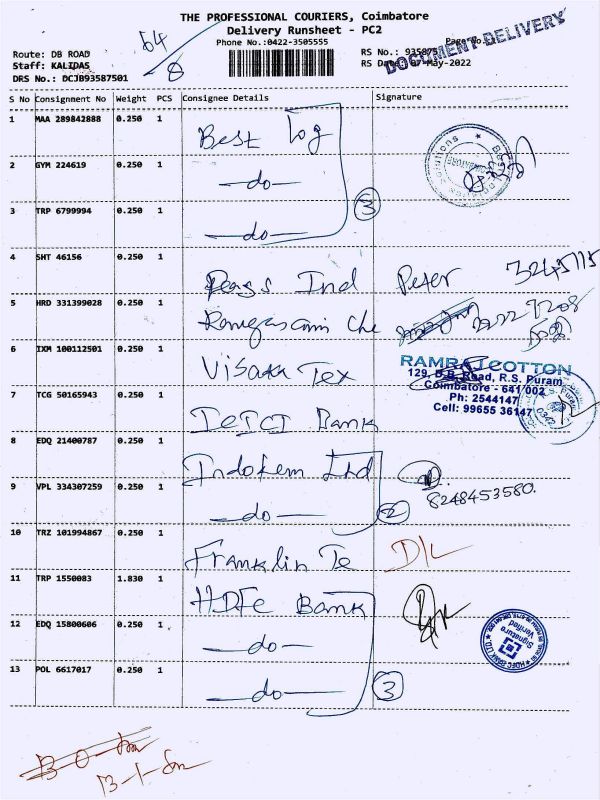 THE PROFESSIONAL COURIERS, Coimbatore
Delivery Runsheet - PC2
Phone No.:0422-3505555
64
8
Route: DB ROAD
Staff: KALIDAS
DRS No.: DCJB93587501
Page No.
RS No.: 935875
RS Date: 07-May-2022
DOCUMENT DELIVERY
S No Consignment No Weight PCS Consignee Details Signature
1 MAA 289842888 0.250 1 Best Log
2 GYM 224619 0.250 1 —do—
3 TRP 6799994 0.250 1 —do—
3
4 SHT 46156 0.250 1 Ind Peter
5 HRD 331399028 0.250 1 Che
6 IXM 100112501 0.250 1 Visaka Tex
RAMRAJ COTTON
129, D.B. Road, R.S. Puram
Coimbatore - 641 002
Ph: 2544147
Cell: 99655 36147
7 TCG 50165943 0.250 1 ICICI Bank
8 EDQ 21400787 0.250 1 Indokem Ltd
9 VPL 334307259 0.250 1 —do—
2
8248453580.
10 TRZ 101994867 0.250 1 Franklin Te D/L
11 TRP 1550083 1.830 1 HDFC Bank
12 EDQ 15800606 0.250 1 —do—
Signature
Verified
13 POL 6617017 0.250 1 —do—
3